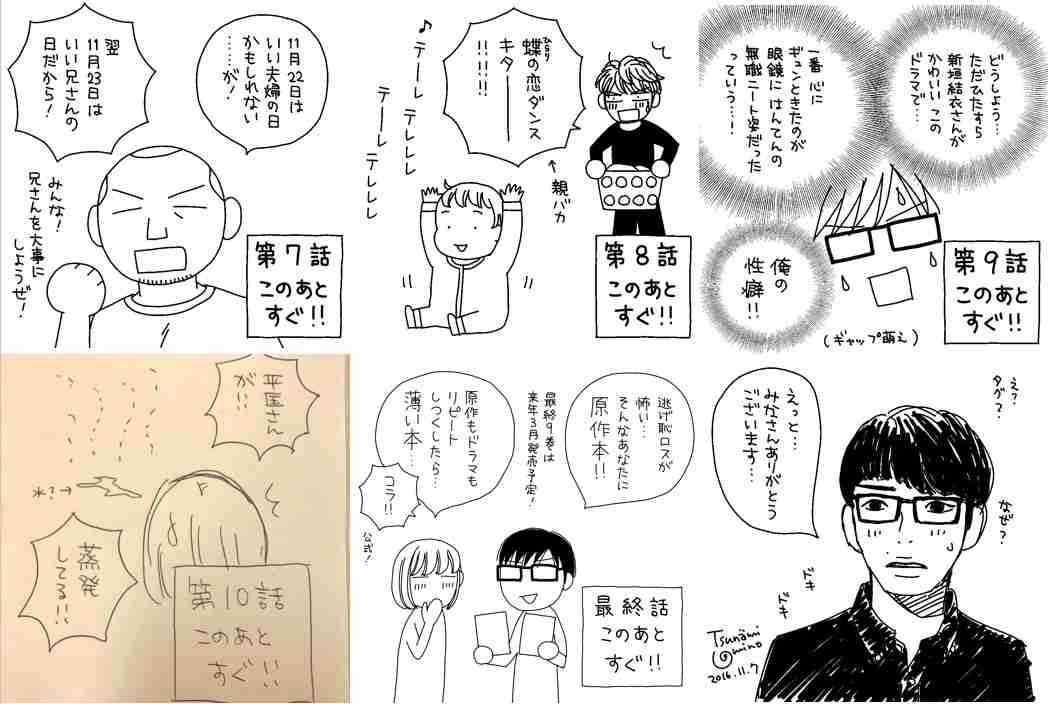 11月22日は
いい夫婦の日
かもしれない
……が!
翌
11月23日は
いい兄さんの
日だから!
みんな!
兄さんを大事に
しようぜ!
第7話
このあと
すぐ!!
♪
テーレ テレレレ
テーレ テレレレ
ひとり
蝶の恋ダンス
キター
!!!!!
←親バカ
第8話
このあと
すぐ!!
どうしよう…
ただひたすら
新垣結衣さんが
かわいい この
ドラマで…
一番 心に
ギュンときたのが
眼鏡に はんてんの
無職ニート姿だった
っていう…!
俺の
性癖!!
(ギャップ萌え)
第9話
このあと
すぐ!!
平匡さん
が!!
水?→
蒸発
してる!!
第10話
このあと
すぐ!!
逃げ恥ロスが
怖い…
そんなあなたに
原作本!!
最終9巻は
来年3月発売予定!
原作もドラマも
リピート
しつくしたら…
薄い本…
コラ!!
公式!
最終話
このあと
すぐ!!
えっと…
みなさんありがとう
ございます…
え?
タグ?
なぜ?
ドキ
ドキ
Tsunami
Umino
2016.11.7